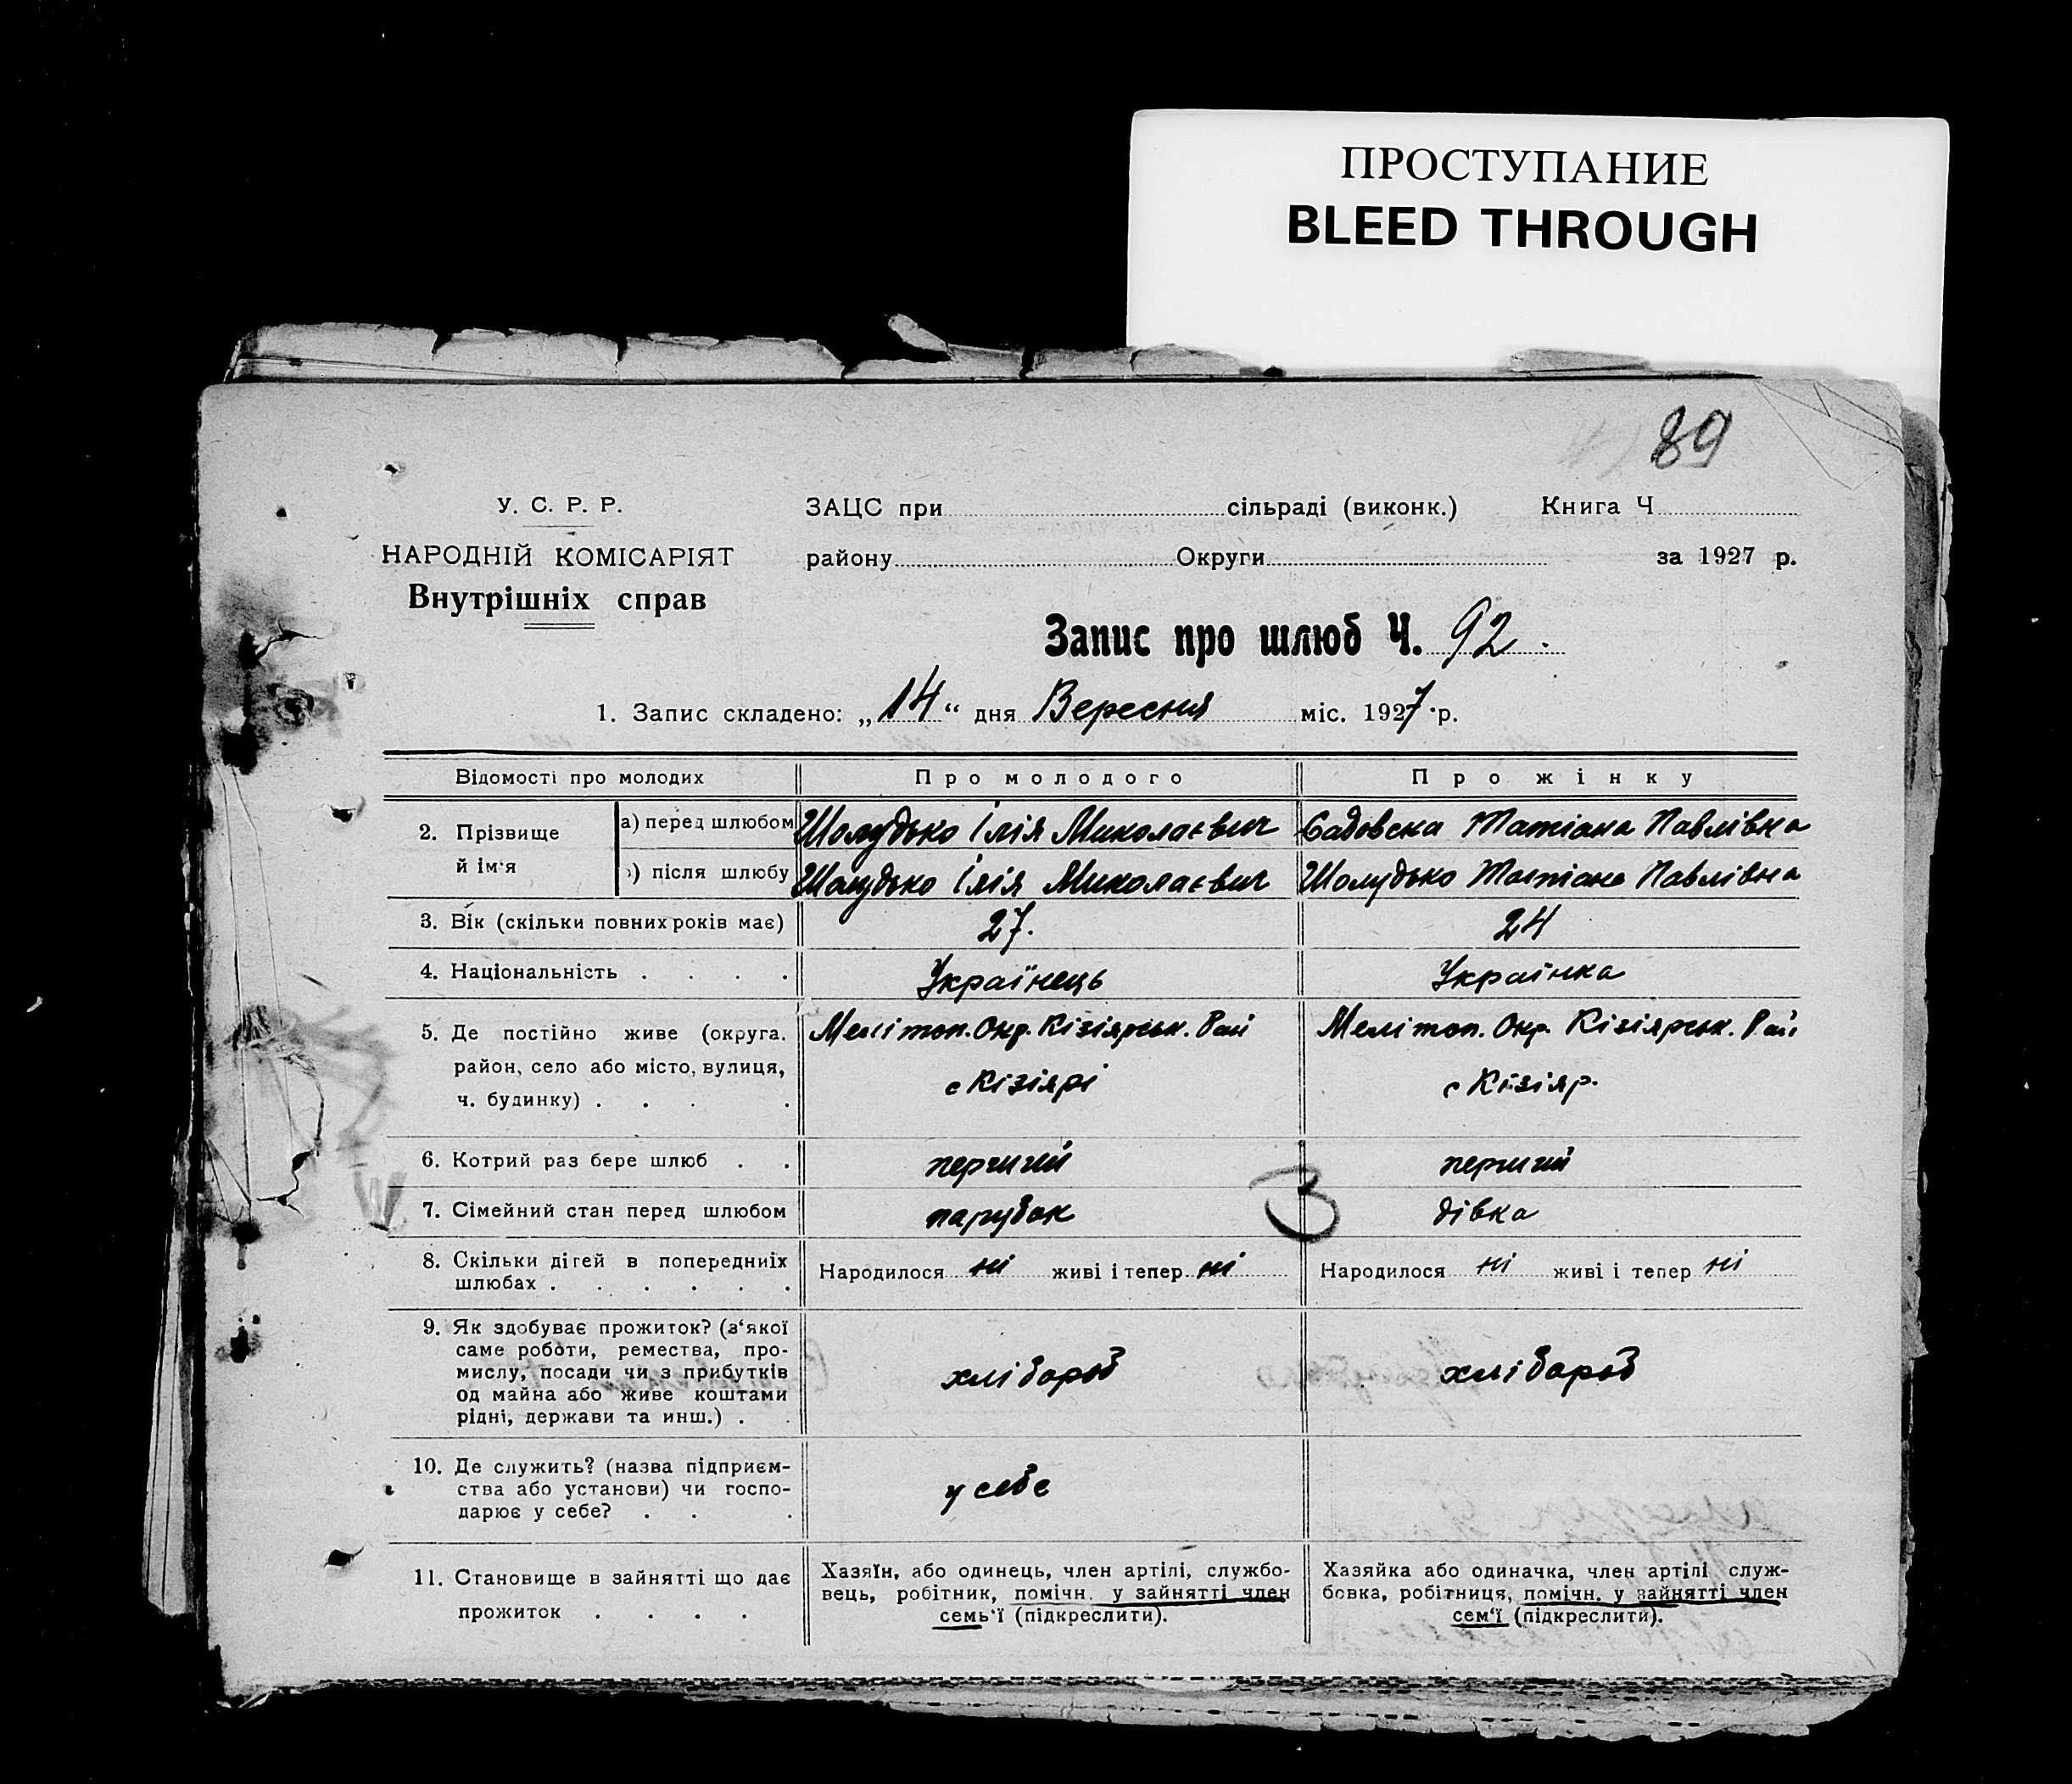 ПРОСТУПАНИЕ
BLEED THROUGH
89
У. С. Р. Р.
НАРОДНІЙ КОМІСАРІЯТ
Внутрішніх справ
ЗАЦС при сільраді (виконк.) Книга Ч
району Округи за 1927 р.
Запис про шлюб Ч. 92.
1. Запис складено: „14“ дня Вересня міс. 1927 р.
Відомості про молодих Про молодого Про жінку
2. Прізвище й ім‘я
а) перед шлюбом Шолудько Ілія Миколаєвич Садовска Татіана Павлівна
) після шлюбу Шолудько Ілія Миколаєвич Шолудько Татіана Павлівна
3. Вік (скільки повних років має) 27. 24
4. Національність . . . . Українець Українка
5. Де постійно живе (округа. Меліտоп. Окр. Кізіярськ. Рай Мелітоп. Окр. Кізіярськ. Рай
район, село або місто, вулиця, с Кізіярі с Кізіяр.
ч. будинку) . . . .
6. Котрий раз бере шлюб . . перший перший
7. Сімейний стан перед шлюбом парубок дівка
З
8. Скільки дітей в попередниіх Народилося ні живі і тепер ні Народилося ні живі і тепер ні
шлюбах . . . . . .
9. Як здобуває прожиток? (з‘якої
саме роботи, ремества, про-
мислу, посади чи з прибутків хлібороб хлібороб
од майна або живе коштами
рідні, держави та инш.) . .
10. Де служить? (назва підприєм-
ства або установи) чи госпо- у себе
дарює у себе? . . .
11. Становище в зайнятті що дає
прожиток . . . .
Хазяїн, або одинець, член артілі, службо-
вець, робітник, помічн. у зайнятті член
семь‘ї (підкреслити).
Хазяйка або одиначка, член артілі служ-
бовка, робітниця, помічн. у зайнятті член
сем‘ї (підкреслити).